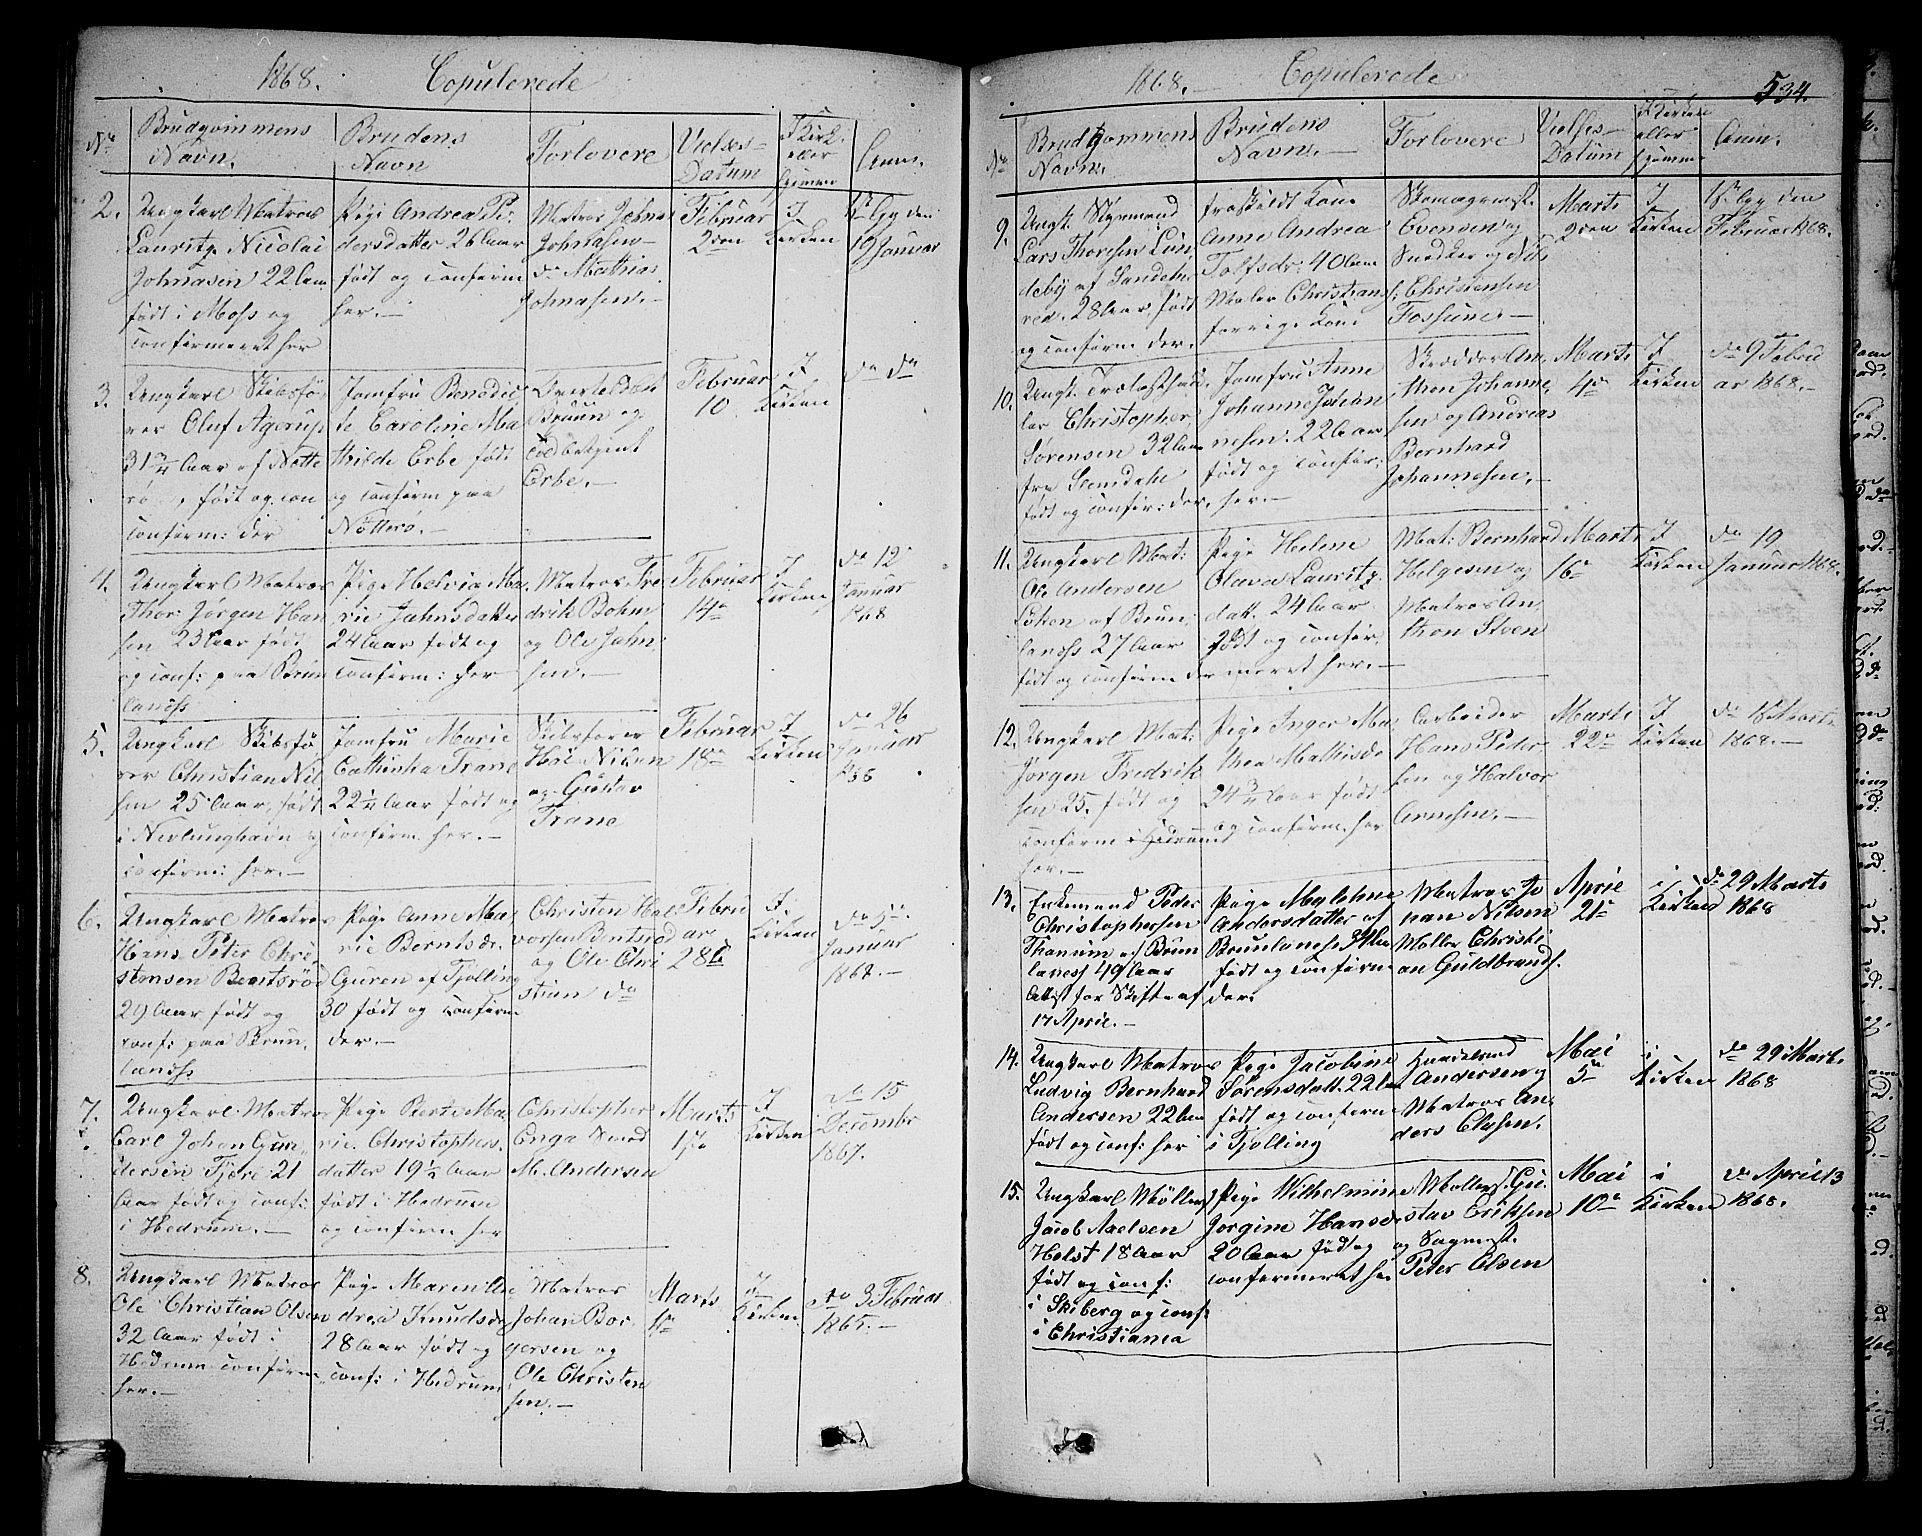 1868. Copulerede
No
Brudgommens
Navn.
Brudens
Navn
Forlovere
Vielses-
Datum
I Kirk.
eller
hjemme
Anm.
2.
Ungkarl Matros
Lauritz Nicolai
Johnasen 22 Aar
født i Moss og
confirmeret her
Pige Andrea Pe-
dersdatter 26 Aar
født og confirm
her.-
Matros Johnas
Johnasen-
do Mathias
Johnasen.-
Februar
2den
I
Kirken
1ste Gg den
19 Januar
3.
Ungkarl Skibsfø
rer Oluf Agerup
31 3/4 Aar af Nøtte
rø, født og con
confirm: der
Jomfru Benedic
te Caroline Ma
thilde Erbe født
og confirm paa
Nøtterø.-
Bruun og
Toldbetjent
Erbe.-
Februar
10
I
Kirken
do do
4.
Ungkarl Matros
Thor Jørgen Han
sen 23 Aar født
og conf: paa Brun
lanæss
Pige Helvia Ma
rie Jahnsdatter
24 Aar født og
confirm: her
Matros Fre
drik Bohm
og Ole Jahn
sen.-
Februar
14de
I
Kirken
do 12
Januar
1868
5.
Ungkarl Skibsfø
rer Christian Nil
sen 25 Aar, født
i Nevlunghavn og
confirm: her.-
Jomfru Marie
Cathinka Trane
22 1/4 Aar født og
confirm. her.-
Skibsfører
Nilsen
og Gustav
Trane
Februar
18de
I
Kirken
do 26
Januar
1868
6.
Ungkarl Matros
Hans Peter Chri
stensen Berntsrød
29 Aar født og
conf: paa Brun,
lanæss
Pige Anne Ma
rie Berntsdr.
Guren af Tjølling
30 født og confirm
der.-
Christen Hal
vorsen Berntsrød
og Ole Chri
stian do
Febru
ar
28de
I.
Kirken
do 5te
Januar
1868.-
7.
Ungkarl Matros
Carl Johan Gun
dersen Fjære 21
Aar født og conf:
i Hedrum.-
Pige Berte Ma
rie Christophers.
datter 19 1/2 Aar
født i Hedrum
og confirm her
Christopher
Enga Smed
M. Andersen
Marts
1ste
I
Kirken
do 15
Decembr
1867.
8.
Ungkarl Matros
Ole Christian Olsen
32 Aar født i
Hedrum confirm
her.-
Pige Maren An
drea Knudsdr.
28 Aar født og
conf: i Hedrum
Matros
Johan Bor
gersen og
Ole Christen
sen.-
Marts
1ste
I
Kirken
do 3 Februar
1868.-
1868.- Copulerede
534.
No
Brudgommens
Navn.
Brudens
Navn.-
Forlovere
Vielses-
Datum
I Kirken
eller
hjemme
Anm.
9.
Ungk. Styrmand
Lars Thoresen Lun
deby af Sandehe
red. 28 Aar, født
og confirm der.
fraskildt Kone
Anne Andrea
Tolfsdr. 40 Aar
Maler Christians
forrige Kone
Skomagermst.
Evensen og
Snedker og Nils
Christensen
Fossum.-
Marts
2den
I
Kirken
1ste Gg den
Februar 1868.
10.
Ungk. Trælasthand
ler Christopher
Sørensen 32 Aar
fra Slemdale
født og confir: der.
Jomfru Anne
Johanne Johan
nesen: 22 Aar
født og confir:
her.-
Skrædder An,
thon Johanne,
sen og Andreas
Bernhard
Johannesen.-
Marts
4de
I
Kirken
do 9 Febru
ar 1868.-
11.
Ungkarl Mat:
Ole Andersen
Løken af Brun,
lanæss 27 Aar
født og confirm der
Pige Helene
Olava Lauritz
datt. 24 Aar
født og confir,
meret her.-
Mat: Bernhard
Helgesen og
Matros An,
thon Steen
Marts
16de
I
Kirken
do 19
Januar 1868.
12.
Ungkarl Mat:
Jørgen Fredrik
sen 25. født og
confirm i Hedrum
her.-
Pige Inger Ma
thea Mathisdr
24 3/4 Aar født
og confirm. her
Arbeider
Hans Peter
sen og Halvor
Arnesen.-
Marts
22de
I
Kirken
do 15 Marts
1868.-
13.
Enkemand Peder
Christophersen
Thanum af Brun
lanæss 49 Aar
Attest for Skifte af
17 April.-
Pige Malene
Andersdatter af
Brunlanæs 34 Aar
født og confirm
der.
Matros Jo
han Nilsen
Møller Christi
an Guldbrands.
April
21de
i
Kirken
do 29 Marts
1868
14.
Ungkarl Matros
Ludvig Bernhard
Andersen 22 Aar
født og conf: her
Pige Jacobine
Sørensdatt. 22 Aar
født og confirm
i Tjølling
Andersen og
Matros An,
ders Olsen.
Mai
5te
i
Kirken
do 29 Marts
1868
15.
Ungkarl Møllers
Jacob Axelsen
Holst 18 Aar
født og conf:
i Skiberg og conf:
i Christiania
Pige Wilhelmine
Jørgine Hansdr
20 Aar født og
confirmeret her
Møllers. Gu,
stav Eriksen
og Sagmst.
Peter Olsen
Mai
10de
i
Kirken
do April 13
1868.